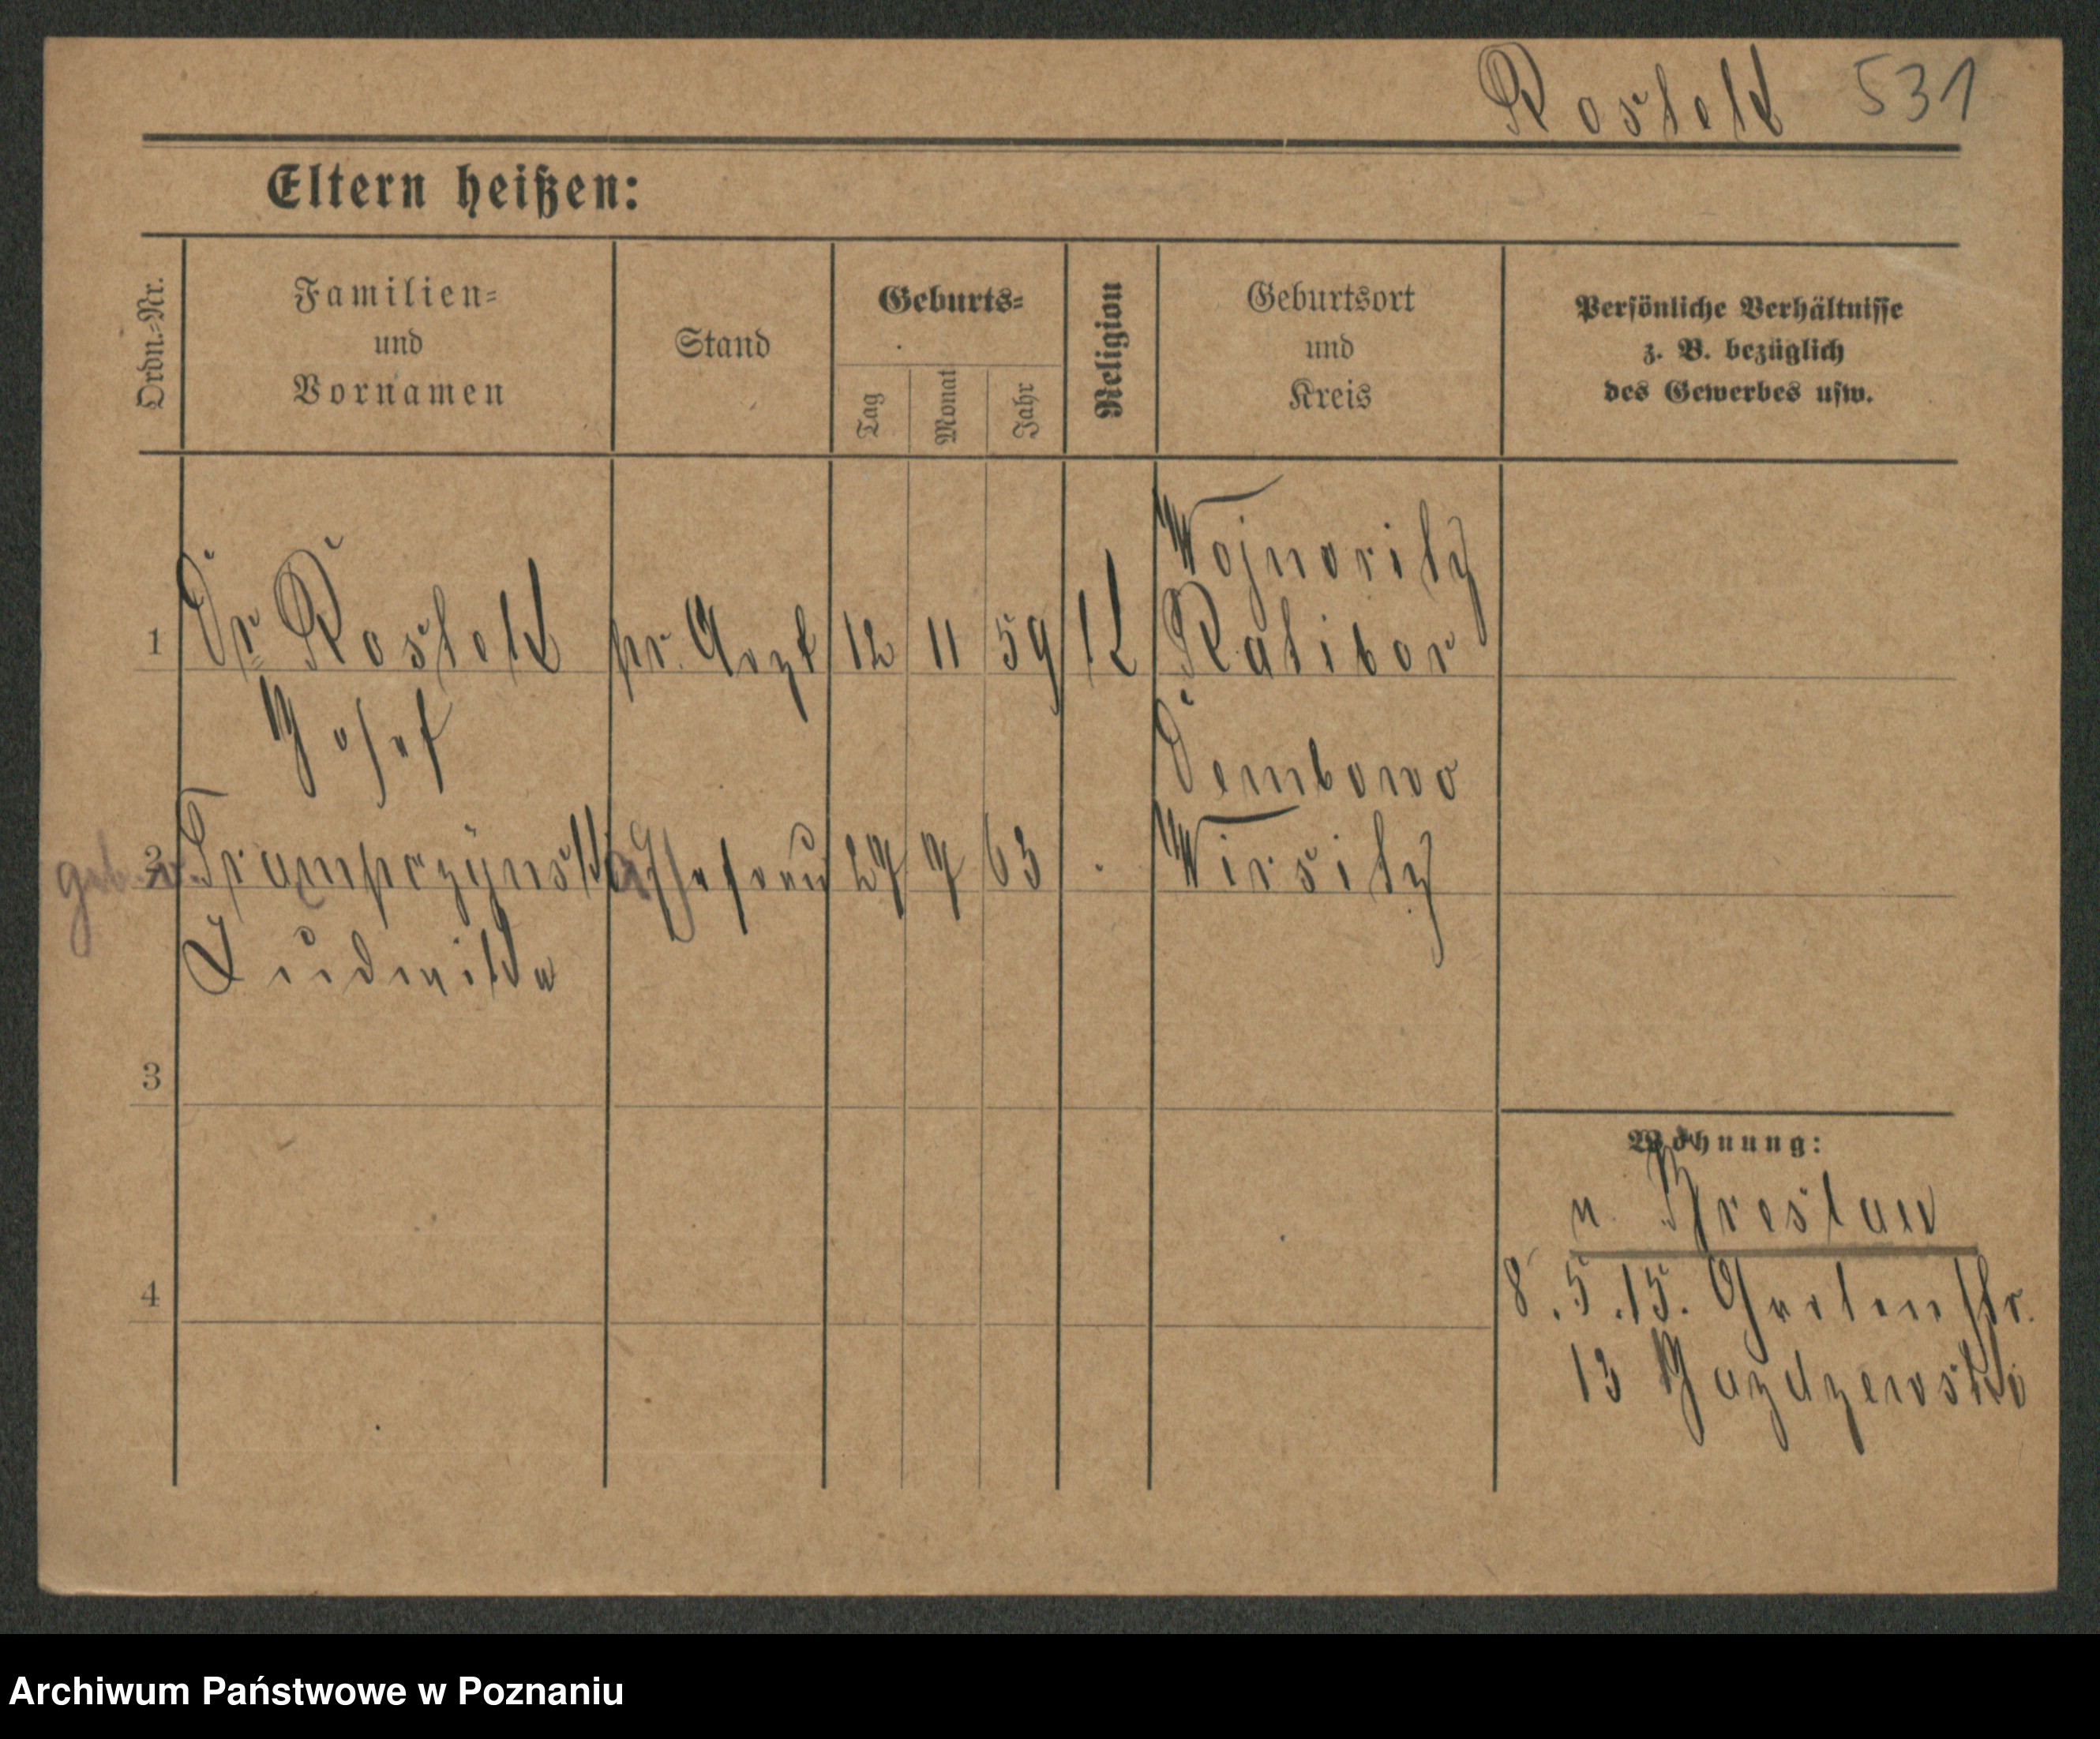 Rostek 531
Eltern heißen:
Ordn.-Nr.
Familien-
und
Vornamen
Stand
Geburts-
Tag
Monat
Jahr
Religion
Geburtsort
und
Kreis
Persönliche Verhältnisse
z. B. bezüglich
des Gewerbes usw.
Wojnowitz
1 Dr Rostek pr. Arzt 12 11 59 k Ratibor
Josef
Dembowo
2 geb. v. Trampczynski Ehefrau 27 7 63 Wirsitz
Ludmilla
3
4
Wohnung:
n. Breslau
8.5.15. Gartenstr.
13 Gazdzewski
Archiwum Państwowe w Poznaniu